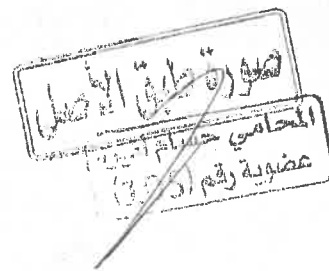 صورة طبق الأصل
المحامي حسام
عضوية رقم